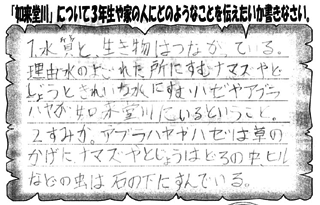 「如来堂川」について3年生や家の人にどのようなことを伝えたいか書きなさい。
1.水質と、生き物はつながっている。
理由水のよごれた所にすむナマズやど
じょうときれいな水にすむハゼやアブラ
ハヤが如来堂川にいるということ。
2.すみか。アブラハヤやハゼは草の
かげにナマズやどじょうはどろの中、ヒル
などの虫は石の下にすんでいる。